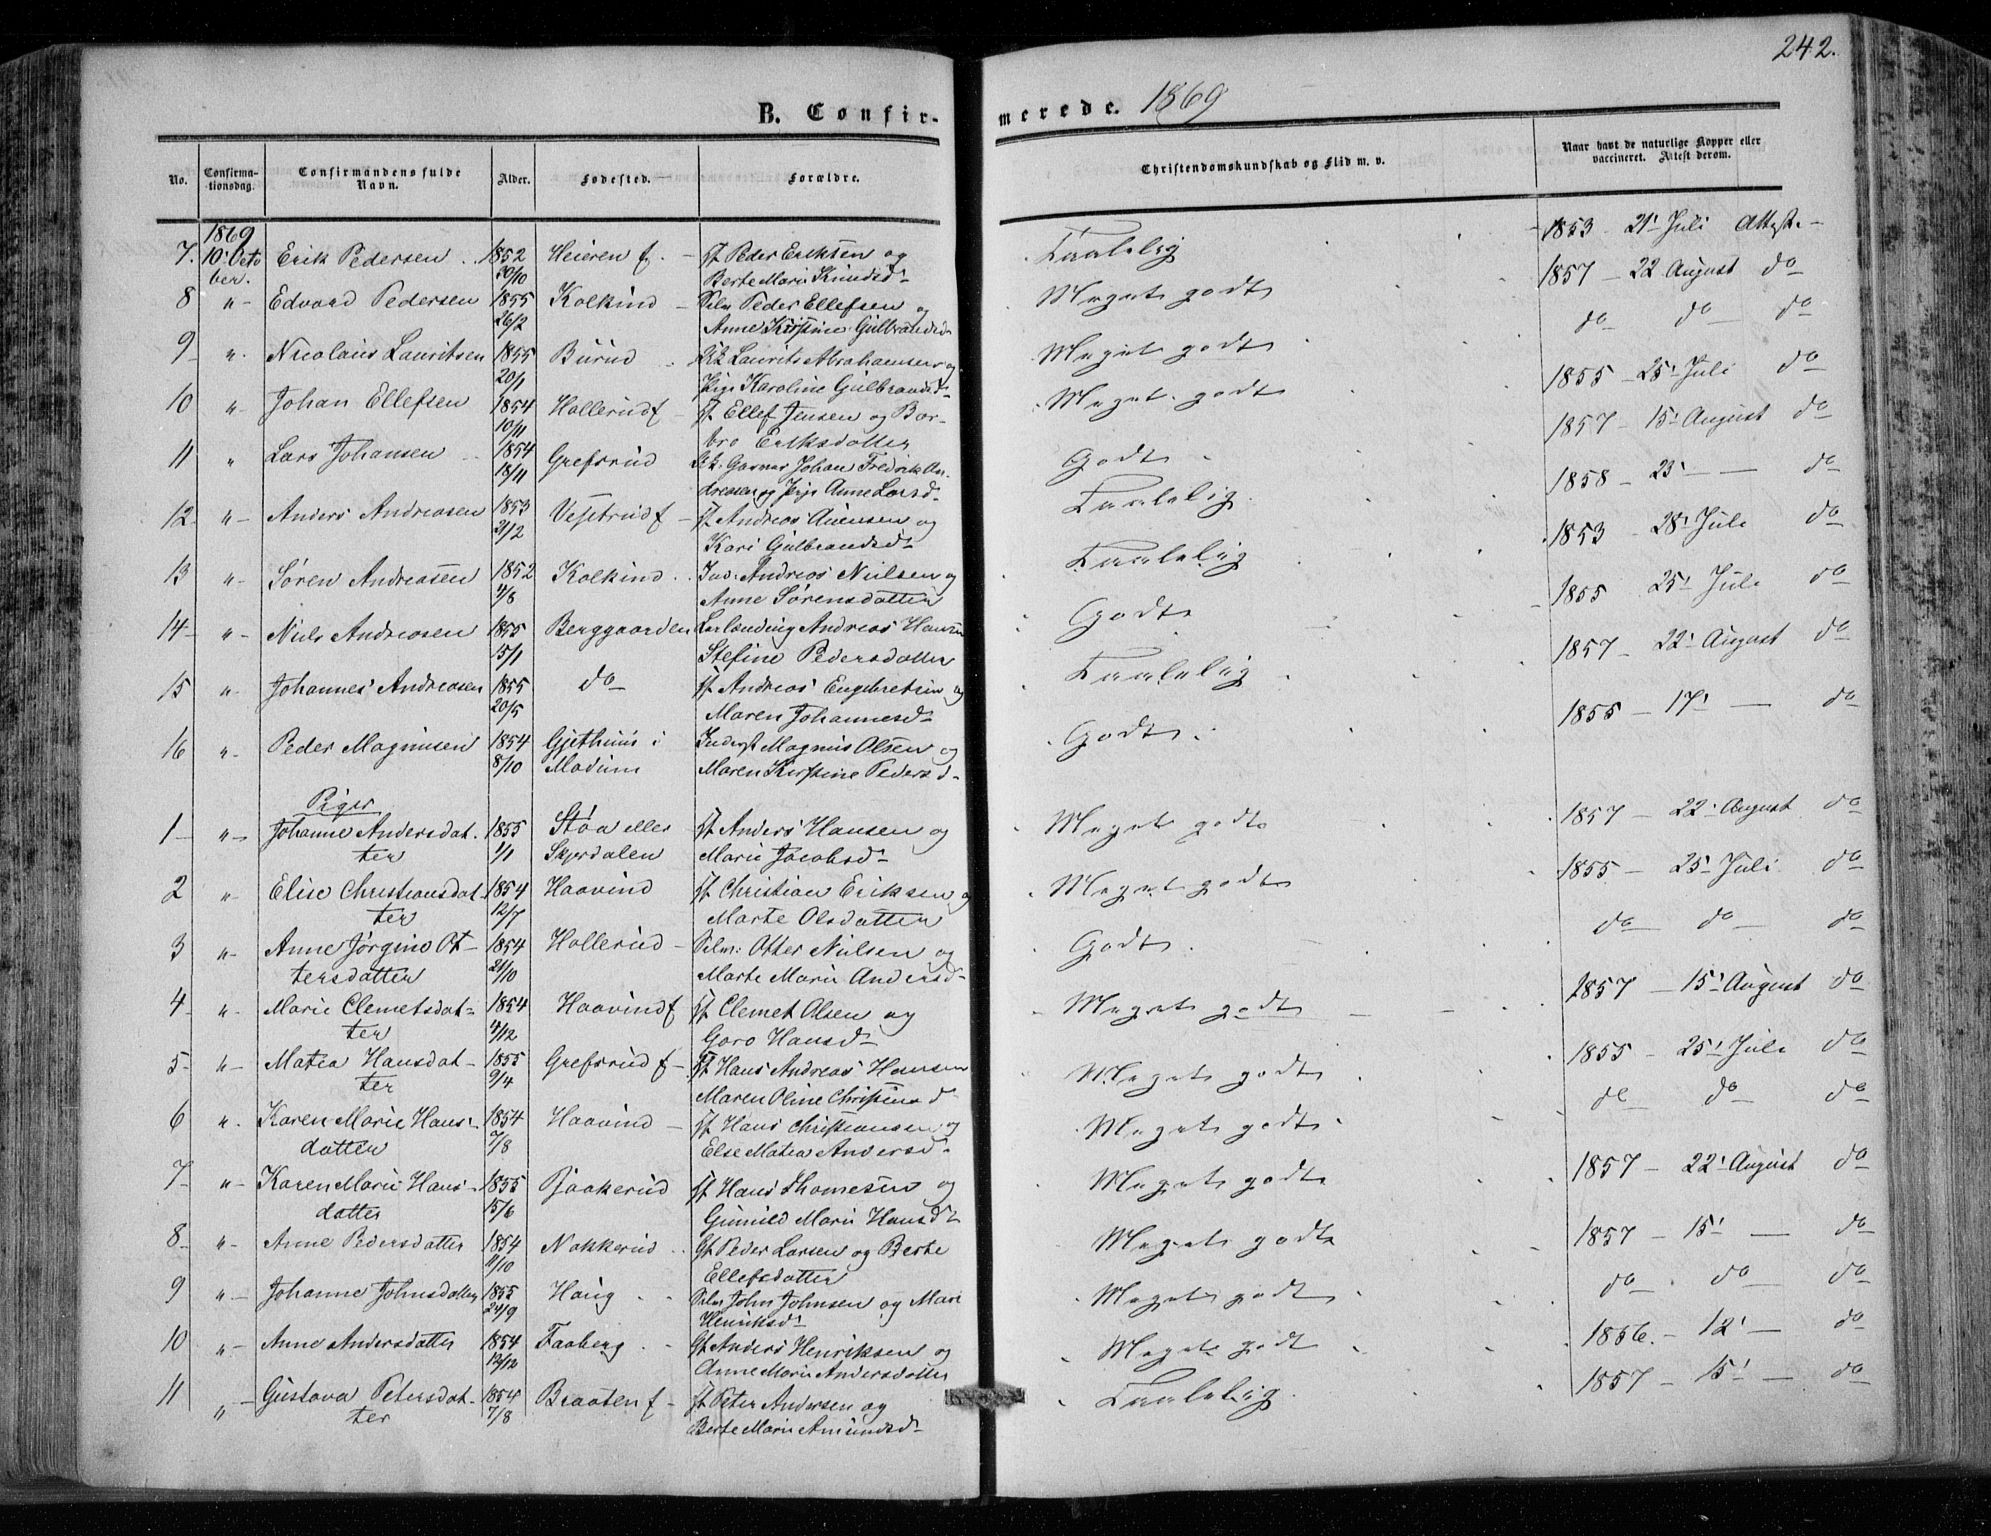 242.
B. Confir-
merede. 1869
No.
Confirma-
tionsdag.
Confirmandens fulde
Navn.
Alder.
Fødested.
Forældre.
Christendomskundskab og Flid m. v.
Naar havt de naturlige Kopper eller
vaccineret. Attest derom.
1869
7. 10' Octo Erik Pedersen 1852 Heieren f. - Peder Eriksen og Taalelig 1853 21' Juli Attest
ber. 30/10 Berte Marie Knudsd
8 " Edvard Pedersen 1855 Kolkind - Selv. Peder Ellefsen og Meget godt 1857 - 22 August do
26/2 Anne Kirstine Gulbrandsd
9 " Nicolais Lauritsen 1855 Burud Laurits Abrahamsen og Meget godt do do do
20/1 Pige Karoline Gulbrandsd
10 " Johan Ellefsen 1854 Hollerud f - Ellef Jensen og Bar- Meget godt 1855 - 25' Juli do
10/11 bro Eriksdatter
11 " Lars Johansen 1854 Grefsrud Johan Fredrik An- Godt 1857 - 15' August do
18/11 dreasen og Pige Anne Larsd
12 " Anders Andreasen 1853 Vesetrud f - Andreas og Taalelig 1858 - 23' - do
21/2 Kari Gulbrandsd
13 " Søren Andreasen 1852 Kolkind Ind. Andreas Nielsen og Taalelig 1853 - 28' Juli do
4/8 Anne Sørensdatter
14 " Niels Andreasen 1855 Berggaarden Andreas Hansen Godt 1855 25' Juli do
15/1 Stefine Pedersdatter
15 " Johannes Andreasen 1855 do Andreas Engebretsen og Taalelig 1857 - 22' August do
20/5 Maren Johannesd
16 " Peder Magnusen 1854 Gjethuus i Inderst Magnus Olsen og Godt 1855 - 17' - do
8/10 Modum Maren Kirstine Pedersd
Piger
1 " Johanne Andersdat- 1855 Støa eller Anders Hansen og Meget godt 1857 - 22' August do
ter 1/1 Skjerdalen Marie Jacobsd
2 " Elise Christiansdat- 1854 Haavind Christian Eriksen og Meget godt 1855 - 25' Juli do
ter 12/7 Marte Olsdatter
3 " Anne Jørgine Ot- 1854 Hollerud - Selv. Otter Nielsen og Godt do do do
tersdatter 21/10 Marte Marie Andersd
4 " Marie Clemetsdat- 1854 Haavind f Clemet Olsen og Meget godt 1857 - 15' August do
ter 4/12 Goro Hansd
5 " Matea Hansdat- 1855 Grefsrud f - Hans Andreas Hansen Meget godt 1855 - 25' Juli do
ter 9/4 Maren Oline Christiansd
6 " Karen Marie Hans- 1854 Haavind - Hans Christiansen og Meget godt do do do
datter 7/8 Else Matea Andersd
7 " Karen Marie Hans- 1855 Bjaakerud Hans Thomesen og Meget godt 1857 - 22' August do
datter 15/6 Gunild Marie Hansd
8 " Anne Pedersdatter 1854 Nakkerud Peder Larsen og Berte Meget godt 1857 - 15' - do
11/10 Ellefsdatter
9 " Johanne Johnsdatter 1855 Haug Selv. John Johnsen og Mari Meget godt do do do
24/9 Henriksd
10 " Anne Andersdatter 1854 Faaberg Anders Henriksen og Meget godt 1856. - 12' - do
13/12 Anne Marie Andersdatter
11 " Gustava Petersdat- 1854 Braaten f - Peter Andersen og Taalelig 1857 - 15' - do
ter 7/8 Berte Marie Amundsd